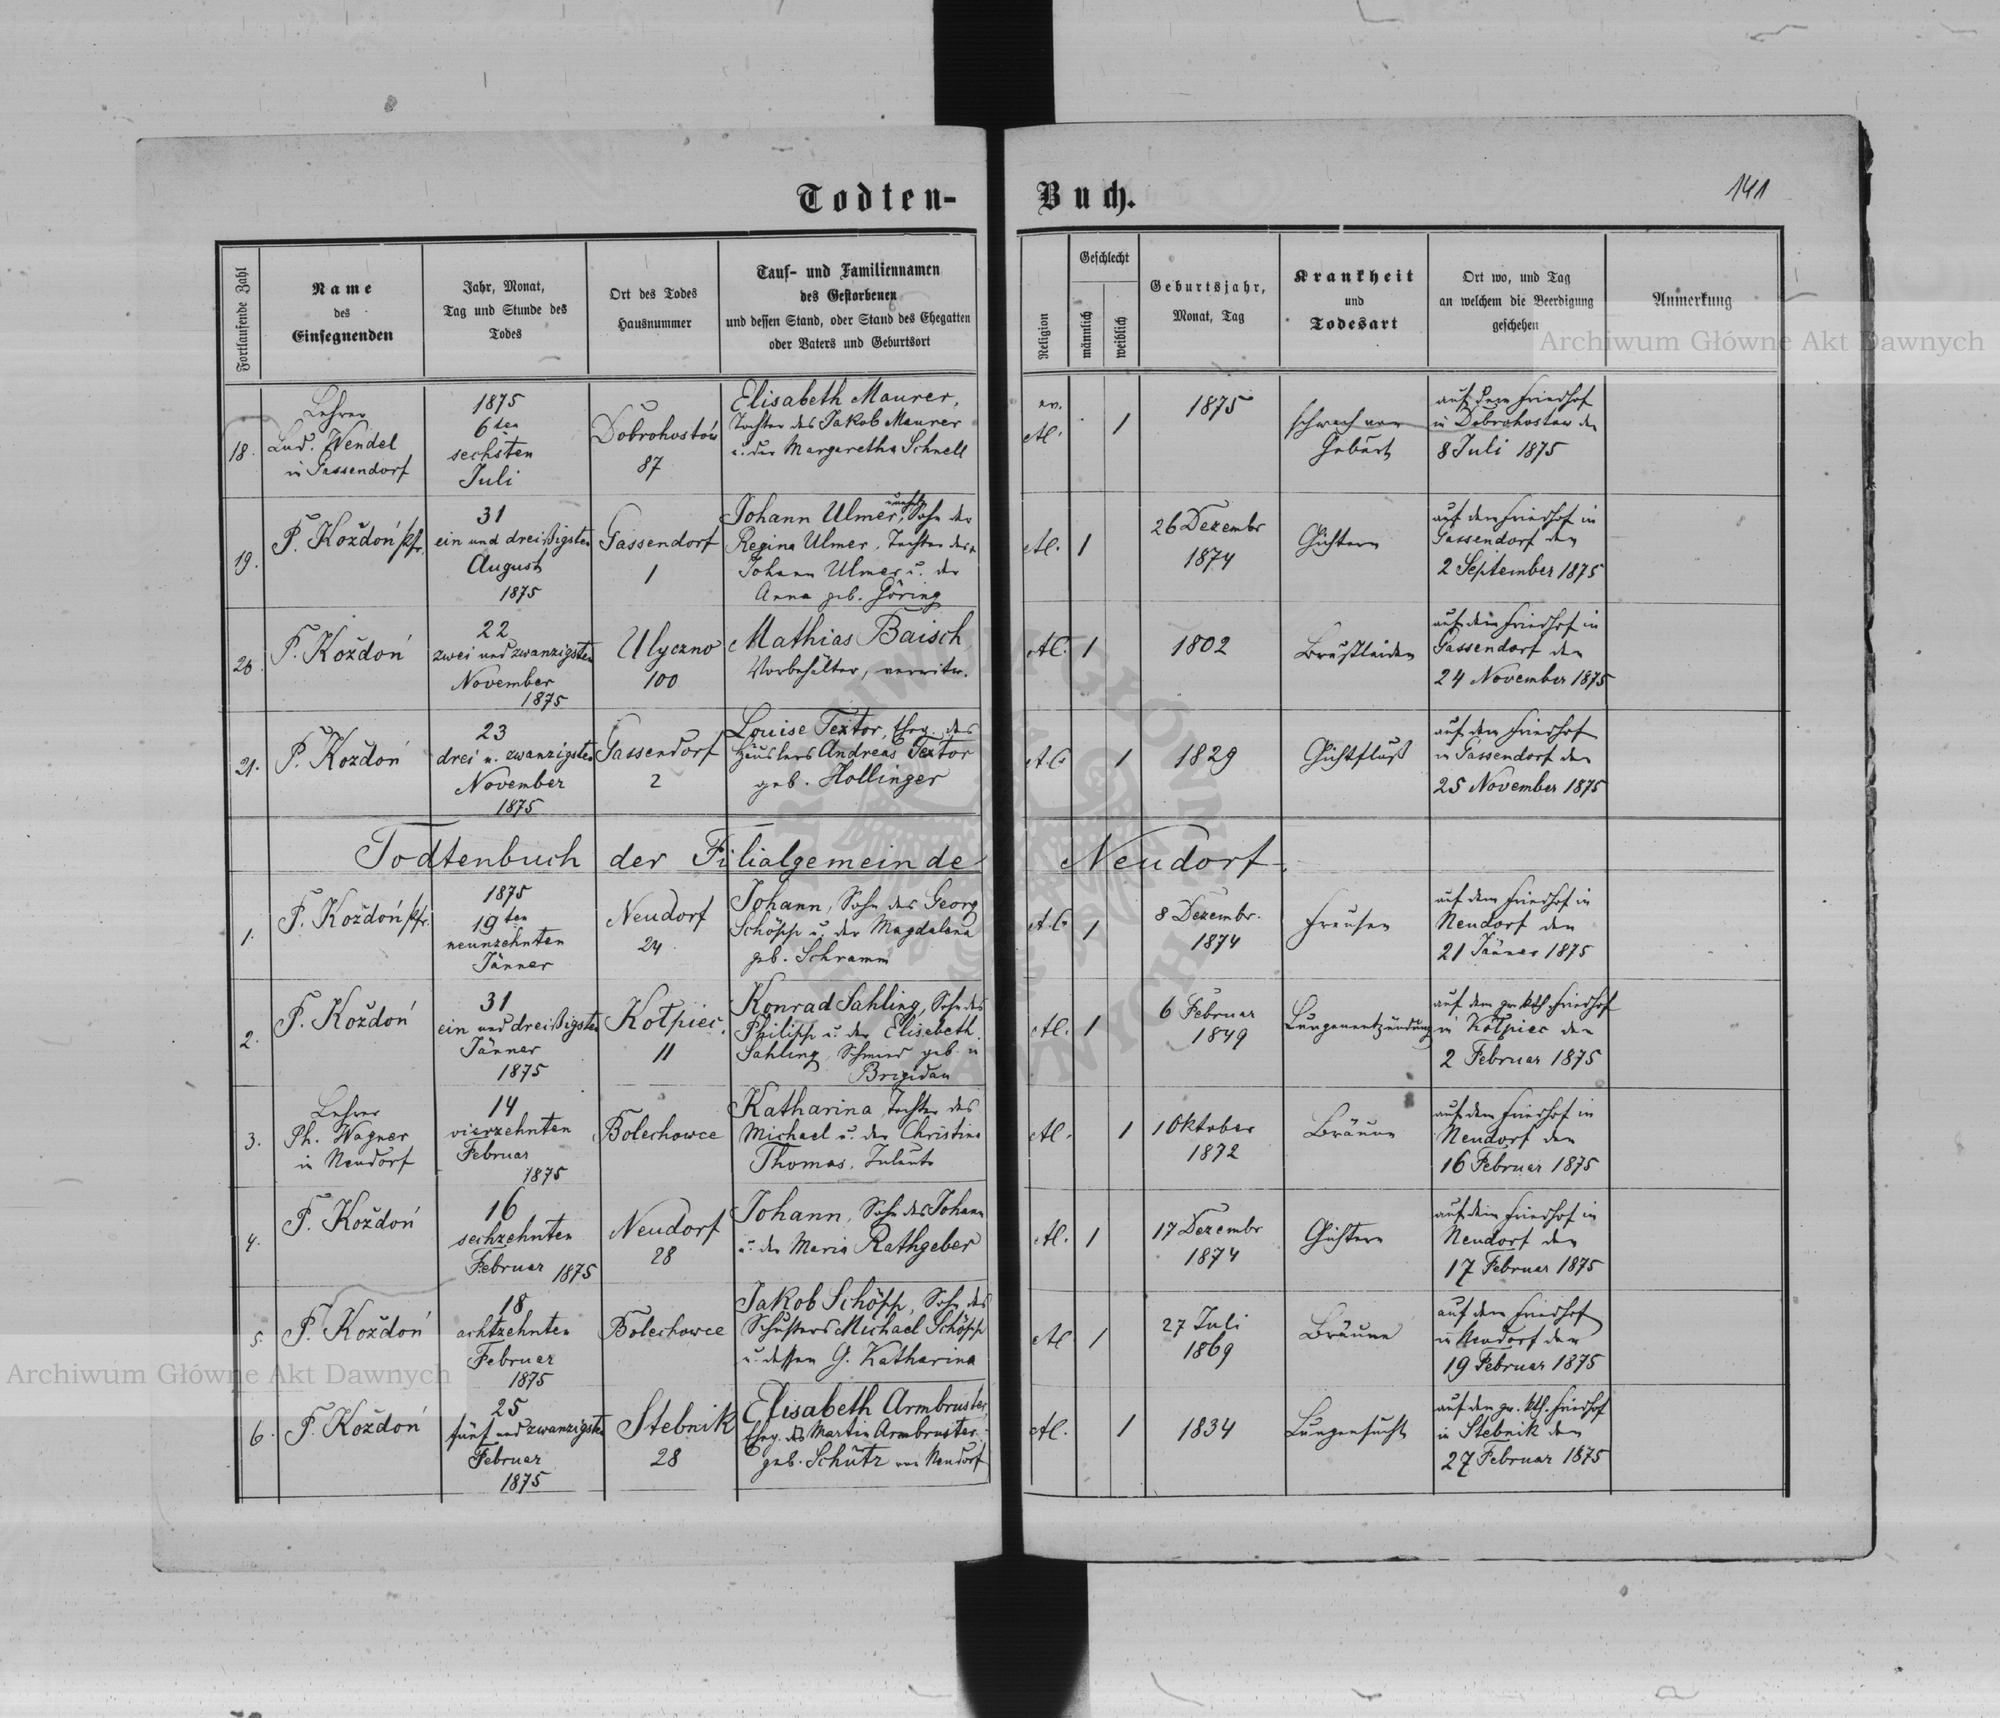 Todten-Buch.
141
Fortlaufende Zahl
Name
des
Einsegnenden
Jahr, Monat,
Tag und Stunde des
Todes
Ort des Todes
Hausnummer
Tauf- und Familiennamen
des Gestorbenen
und dessen Stand, oder Stand des Ehegatten
oder Vaters und Geburtsort
Religion
Geschlecht
männlich
weiblich
Geburtsjahr,
Monat, Tag
Krankheit
und
Todesart
Ort wo, und Tag
an welchem die Beerdigung
geschehen
Anmerkung
18.
Lehrer
Lud. Wendel
in Gassendorf
1875
6ten
sechsten
Juli
Dobrohostów
87
Elisabeth Maurer,
Tochter des Jakob Maurer
u. der Margaretha Schnell
ev.
AC.
1
1875
schwach von
Geburt
auf dem Friedhof
in Dobrohostow den
8 Juli 1875
19.
F. Koždoń Pfr.
31
ein und dreißigsten
August
1875
Gassendorf
1
Johann Ulmer, unehl. Sohn der
Regina Ulmer, Tochter des
Johann Ulmer u. der
Anna geb. Göring
AC.
1
26 Dezembr
1874
Gichtern
auf dem Friedhof in
Gassendorf den
2 September 1875
20.
F. Koždoń
22
zwei und zwanzigsten
November
1875
Ulyczno
100
Mathias Baisch,
Vorbehälter, verwitw.
AC.
1
1802
Brustleiden
auf dem Friedhof in
Gassendorf den
24 November 1875
21.
F. Koždoń
23
drei u. zwanzigsten
November
1875
Gassendorf
2
Louise Textor, Eheg. des
Häuslers Andreas Textor
geb. Hollinger
AC
1
1829
Gichtfluß
auf dem Friedhof
in Gassendorf den
25 November 1875
Todtenbuch der Filialgemeinde Neudorf.
1.
F. Koždoń Pfr.
1875
19ten
neunzehnten
Jänner
Neudorf
24
Johann, Sohn des Georg
Schöpp u. der Magdalena
geb. Schramm
AC
1
8 Dezembr.
1874
Freusen
auf dem Friedhof in
Neudorf den
21 Jänner 1875
2.
F. Koždoń
31
ein und dreißigsten
Jänner
1875
Kołpiec.
11
Konrad Sahling, Sohn des
Philipp u. der Elisabeth
Sahling, Schmied geb. in
Brigidau
AC.
1
6 Februar
1849
Lungenentzündung
auf dem gr. kth. Friedhof
in Kołpiec den
2 Februar 1875
3.
Lehrer
Ph. Wagner
in Neudorf
14
vierzehnten
Februar
1875
Bolechowce
Katharina, Tochter des
Michael u. der Christina
Thomas,
AC.
1
1 Oktober
1872
Bräune
auf dem Friedhof in
Neudorf den
16 Februar 1875
4.
F. Koždoń
16
sechzehnten
Februar 1875
Neudorf
28
Johann, Sohn des Johann
u. der Maria Rathgeber
AC.
1
17 Dezembr
1874
Gichtern
auf dem Friedhof in
Neudorf den
17 Februar 1875
5.
F. Koždoń
18
achtzehnten
Februar
1875
Bolechowce
Jakob Schöpp, Sohn des
Schusters Michael Schöpp
u. dessen G. Katharina
AC
1
27 Juli
1869
Bräune
auf dem Friedhof
in Neudorf den
19 Februar 1875
6.
F. Koždoń
25
fünf und zwanzigsten
Februar
1875
Stebnik
28
Elisabeth Armbruster,
Eheg. des Martin Armbruster
geb. Schütz von Neudorf
AC.
1
1834
Lungensucht
auf dem gr. kth. Friedhof
in Stebnik den
27 Februar 1875
Archiwum Główne Akt Dawnych
Archiwum Główne Akt Dawnych